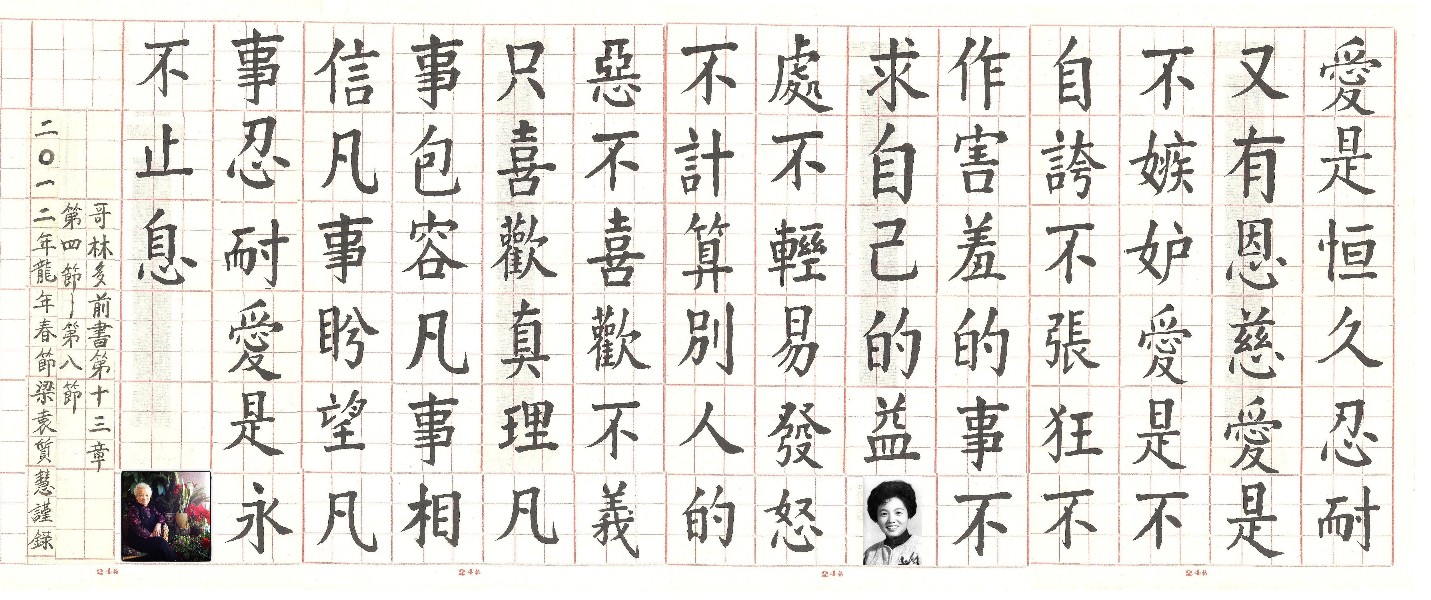 愛是恒久忍耐
又有恩慈愛是
不嫉妒愛是不
自誇不張狂不
作害羞的事不
求自己的益
處不輕易發怒
不計算別人的
惡不喜歡不義
只喜歡真理凡
事包容凡事相
信凡事盼望凡
事忍耐愛是永
不止息
哥林多前書第十三章
第四節~第八節
二〇一二年龍年春節梁袁質慧謹錄